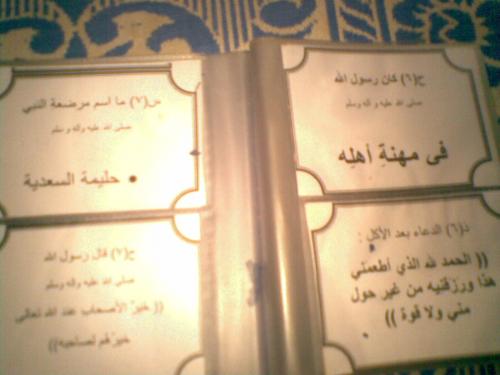 ح(٦) كان رسول الله
صلى الله عليه وآله وسلم
فى مهنةِ أهلِه
د(٦) الدعاء بعد الأكل :
(( الحمد لله الذي أطعمني
هذا ورزقنيه من غير حول
مني ولا قوة ))
س(٧) ما اسم مرضعة النبي
صلى الله عليه وآله وسلم
• حليمة السعدية
ح(٧) قال رسول الله
صلى الله عليه وآله وسلم
(( خيرُ الأصحاب عند الله تعالى
خيرُهم لصاحبه))